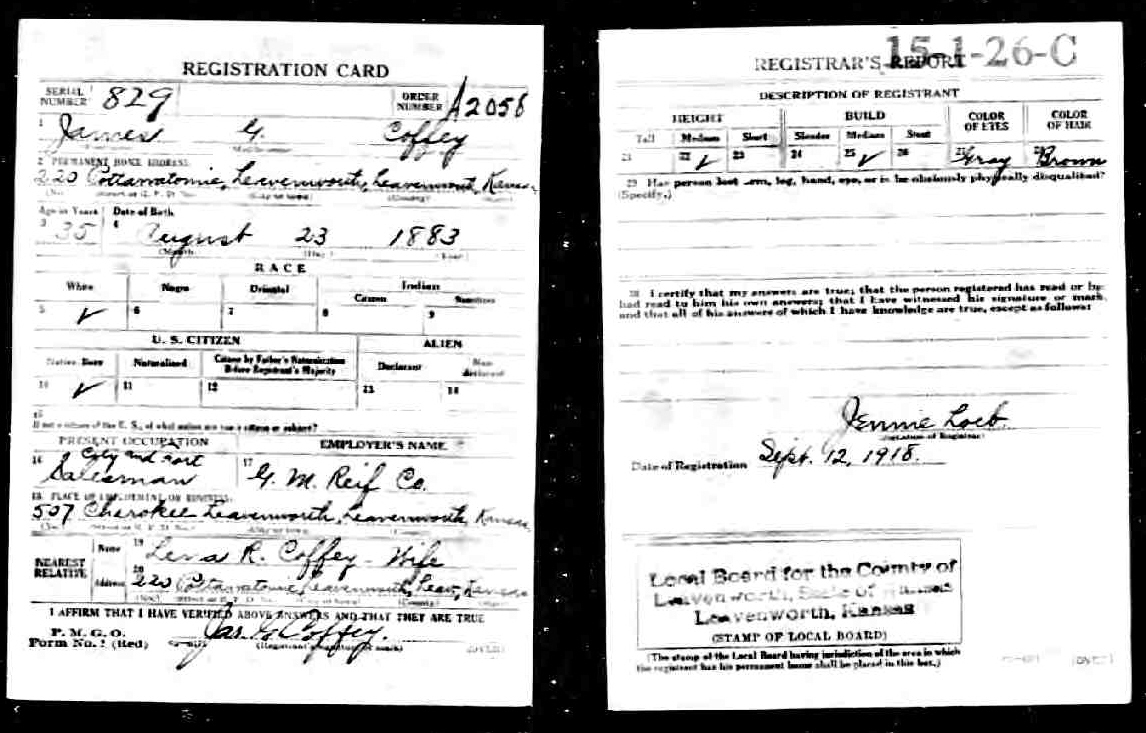 REGISTRATION CARD
SERIAL NUMBER 829
ORDER NUMBER A2058
1 James G. Coffey
2 PERMANENT HOME ADDRESS:
220 Pottawatomie, Leavenworth, Leavenworth, Kansas
Age in Years Date of Birth
3 35 4 August 23 1883
(Month) (Day) (Year)
RACE
White Negro Oriental Indian
Citizen
5 ✓ 6 7 8 9
U. S. CITIZEN ALIEN
Native Born Naturalized Citizen by Father's Naturalization Before Registrant's Majority Declarant Non-declarant
10 ✓ 11 12 13 14
15
If not a citizen of the U. S., of what nation are you a citizen or subject?
PRESENT OCCUPATION EMPLOYER'S NAME
16 City and Fort Salesman 17 G. M. Reif Co.
18 PLACE OF EMPLOYMENT OR BUSINESS:
507 Cherokee Leavenworth, Leavenworth, Kansas
NEAREST RELATIVE
Name 19 Lena R. Coffey - Wife
Address 20 220 Pottawatomie, Leavenworth, Leav, Kansas
I AFFIRM THAT I HAVE VERIFIED ABOVE ANSWERS AND THAT THEY ARE TRUE
P. M. G. O.
Form No. 1 (Red) Jas G Coffey.
(Registrant's signature or mark) (OVER)
15-1-26-C
REGISTRAR'S REPORT
DESCRIPTION OF REGISTRANT
HEIGHT BUILD COLOR OF EYES COLOR OF HAIR
Tall Medium Short Slender Medium Stout
21 22 ✓ 23 24 25 ✓ 26 27 Gray 28 Brown
29 Has person lost arm, leg, hand, eye, or is he obviously physically disqualified?
(Specify.)
30 I certify that my answers are true; that the person registered has read or has
had read to him his own answers; that I have witnessed his signature or mark,
and that all of his answers of which I have knowledge are true, except as follows:
Jennie Loeb
(Signature of Registrar)
Date of Registration Sept. 12, 1918.
Local Board for the County of
Leavenworth, State of Kansas
Leavenworth, Kansas
(STAMP OF LOCAL BOARD)
(The stamp of the Local Board having jurisdiction of the area in which
the registrant has his permanent home shall be placed in this box.)
(OVER)